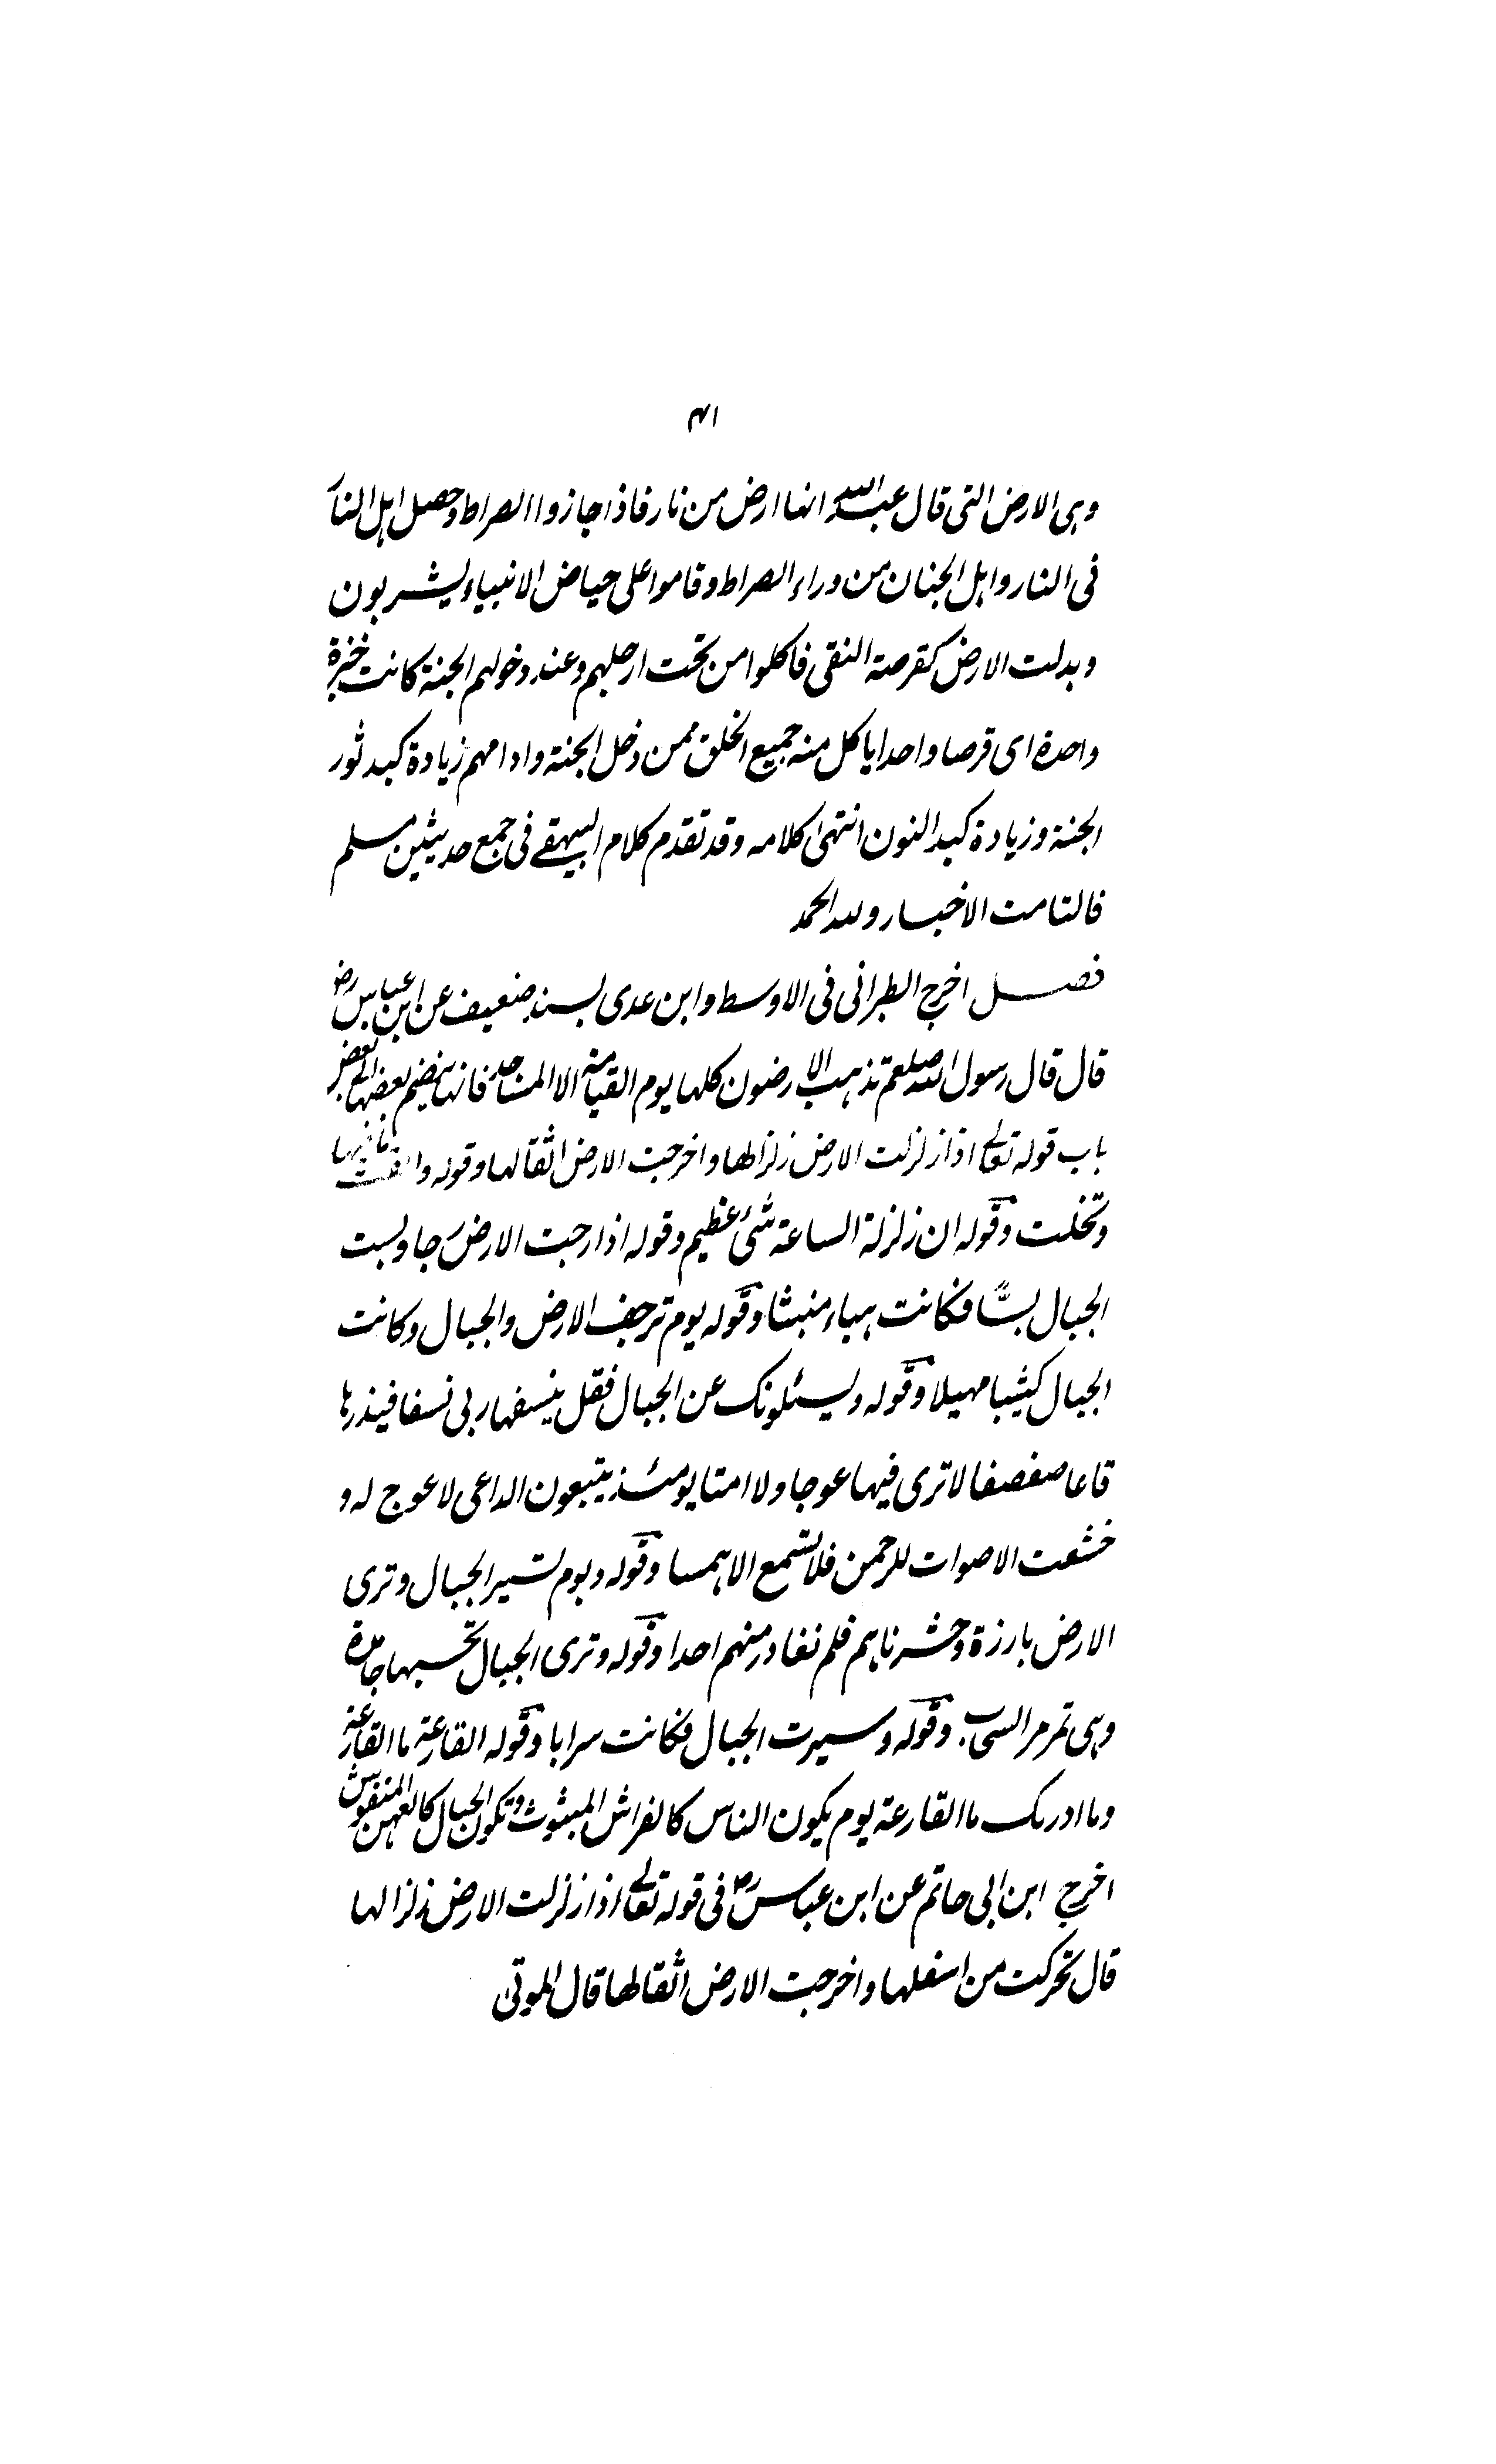 ۴۱
وہی الارض التی قال عبد اللہ انہا ارض من نار فاذا جازوا الصراط وحصل اہل النار
فی النار واہل الجنان من وراء الصراط وقاموا علی حیاض الانبیاء یشربون
وبدلت الارض کقرصة النقی فاکلوا من تحت ارجلہم وعند دخولہم الجنة کانت خبزة
واحدة ای قرصا واحدا یاکل منہ جمیع الخلق ممن دخل الجنة وادامہم زیادة کبد ثور
الجنة وزیادة کبد النون انتہی کلامہ وقد تقدم کلام البیہقے فی جمع حدیثین مسلم
فالتامت الاخبار وللہ الحمد
فصل اخرج الطبرانی فی الاوسط وابن عدی بسند ضعیف عن ابن عباس رض
قال قال رسول اللہ صلعم تذہب الارضون کلہا یوم القیامة الا المساجد فانہا ینضم بعضہا الی بعض
باب قولہ تعالی اذا زلزلت الارض زلزالہا واخرجت الارض اثقالہا وقولہ والقت ما فیہا
وتخلت وقولہ ان زلزلة الساعة شئ عظیم وقولہ اذا رجت الارض رجا وبست
الجبال بسًّا فکانت ہباء منبثا وقولہ یوم ترجف الارض والجبال وکانت
الجبال کثیبا مہیلا وقولہ ویسئلونک عن الجبال فقل ینسفہا ربی نسفا فیذرہا
قاعا صفصفا لا تری فیہا عوجا ولا امتا یومئذ یتبعون الداعی لا عوج لہ و
خشعت الاصوات للرحمن فلا تسمع الا ہمسا وقولہ ویوم نسیر الجبال وتری
الارض بارزة وحشرناہم فلم نغادر منہم احدا وقولہ وتری الجبال تحسبہا جامدة
وہی تمر مر السحاب وقولہ وسیرت الجبال فکانت سرابا وقولہ القارعة ما القارعة
وما ادرىک ما القارعة یوم یکون الناس کالفراش المبثوث وتکون الجبال کالعہن المنفوش
اخرج ابن ابی حاتم عن ابن عباس رض فی قولہ تعالی اذا زلزلت الارض زلزالہا
قال تحرکت من اسفلہا واخرجت الارض اثقالہا قال الموتیٰ